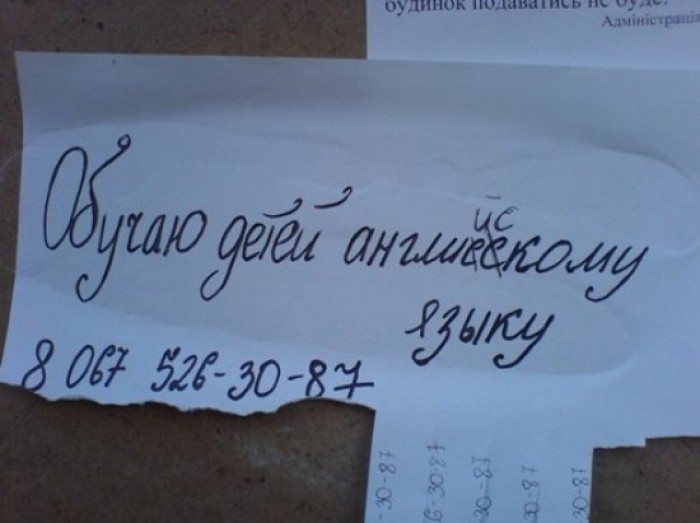 будинок подаватись не буде.
Адміністрація
Обучаю детей английскому
языку
8 067 526-30-87
-30-87
26-30-87
-30-87
-30-87
-30-87